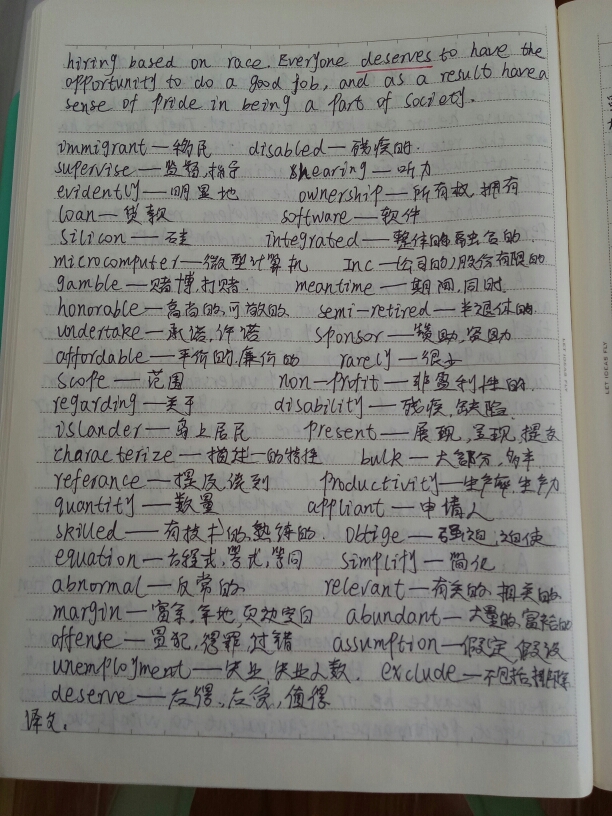 hiring based on race. Everyone deserves to have the
opportunity to do a good job, and as a result have a
sense of pride in being a part of society.
immigrant—移民 disabled—残疾的.
supervise—监督,指导 shearing—听力
evidently—明显地 ownership—所有权 拥有
loan—货款 software—软件
silicon—硅 integrated—整体的
microcomputer—微型计算机 Inc—(公司的)股份有限的
gamble—赌博,打赌. meantime—期间,同时.
honorable—高尚的,可敬的. semi-retired—半退休的.
undertake—承诺,许诺 sponsor—赞助,资助
affordable—平价的,廉价的 rarely—很少
scope—范围 non-profit—非盈利性的.
regarding—关于 disability—残疾,缺陷.
islander—岛上居民 present—展现,呈现,提交
characterize—描述…的特性 bulk—大部分,多半
referance—提及 谈到 productivity—生产率,生产力
quantity—数量 appliant—申请人
skilled—有技术的,熟练的. obtige—强迫,迫使
equation—方程式,等式,等同 simplify—简化
abnormal—反常的 relevant—有关的,相关的
margin—富余,余地,页边空白 abundant—大量的,富裕的
offense—冒犯,得罪,过错 assumption—假定,假设
unemployment—失业,失业人数. exclude—不包括,排除
deserve—应得,应受,值得
译文.
LET IDEAS FLY